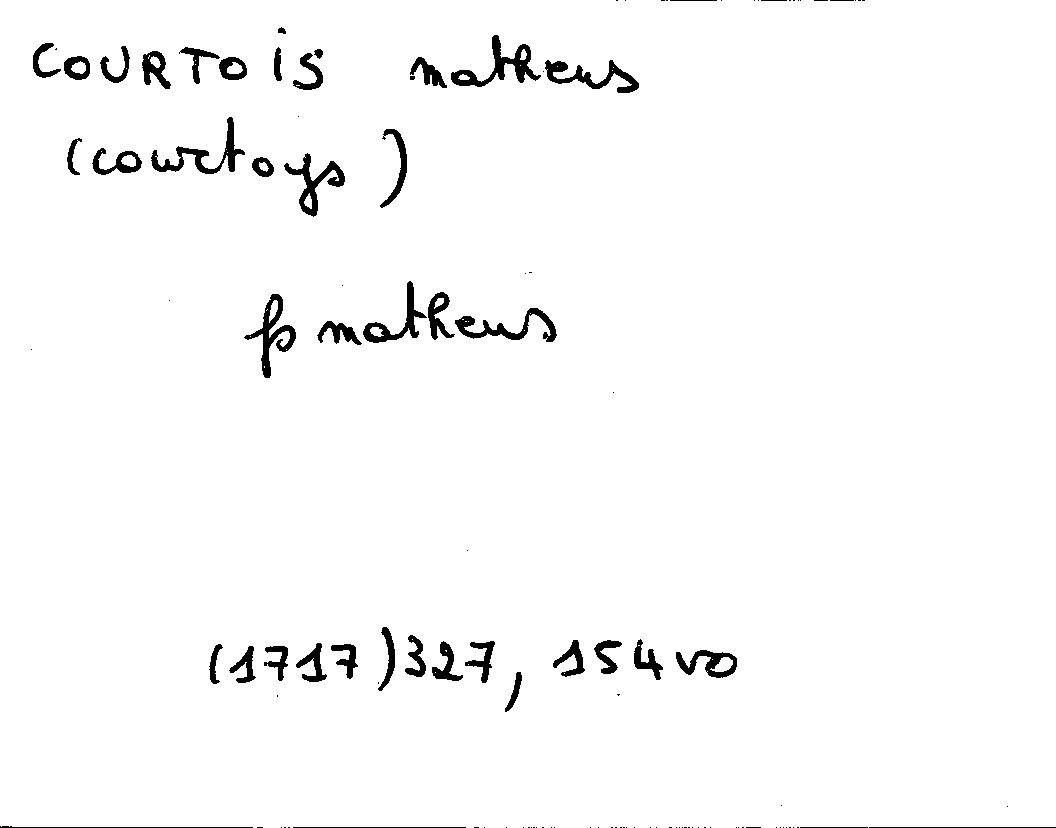 COURTOIS matheus
(courtoys)
fs matheus
(1717)327, 154vo